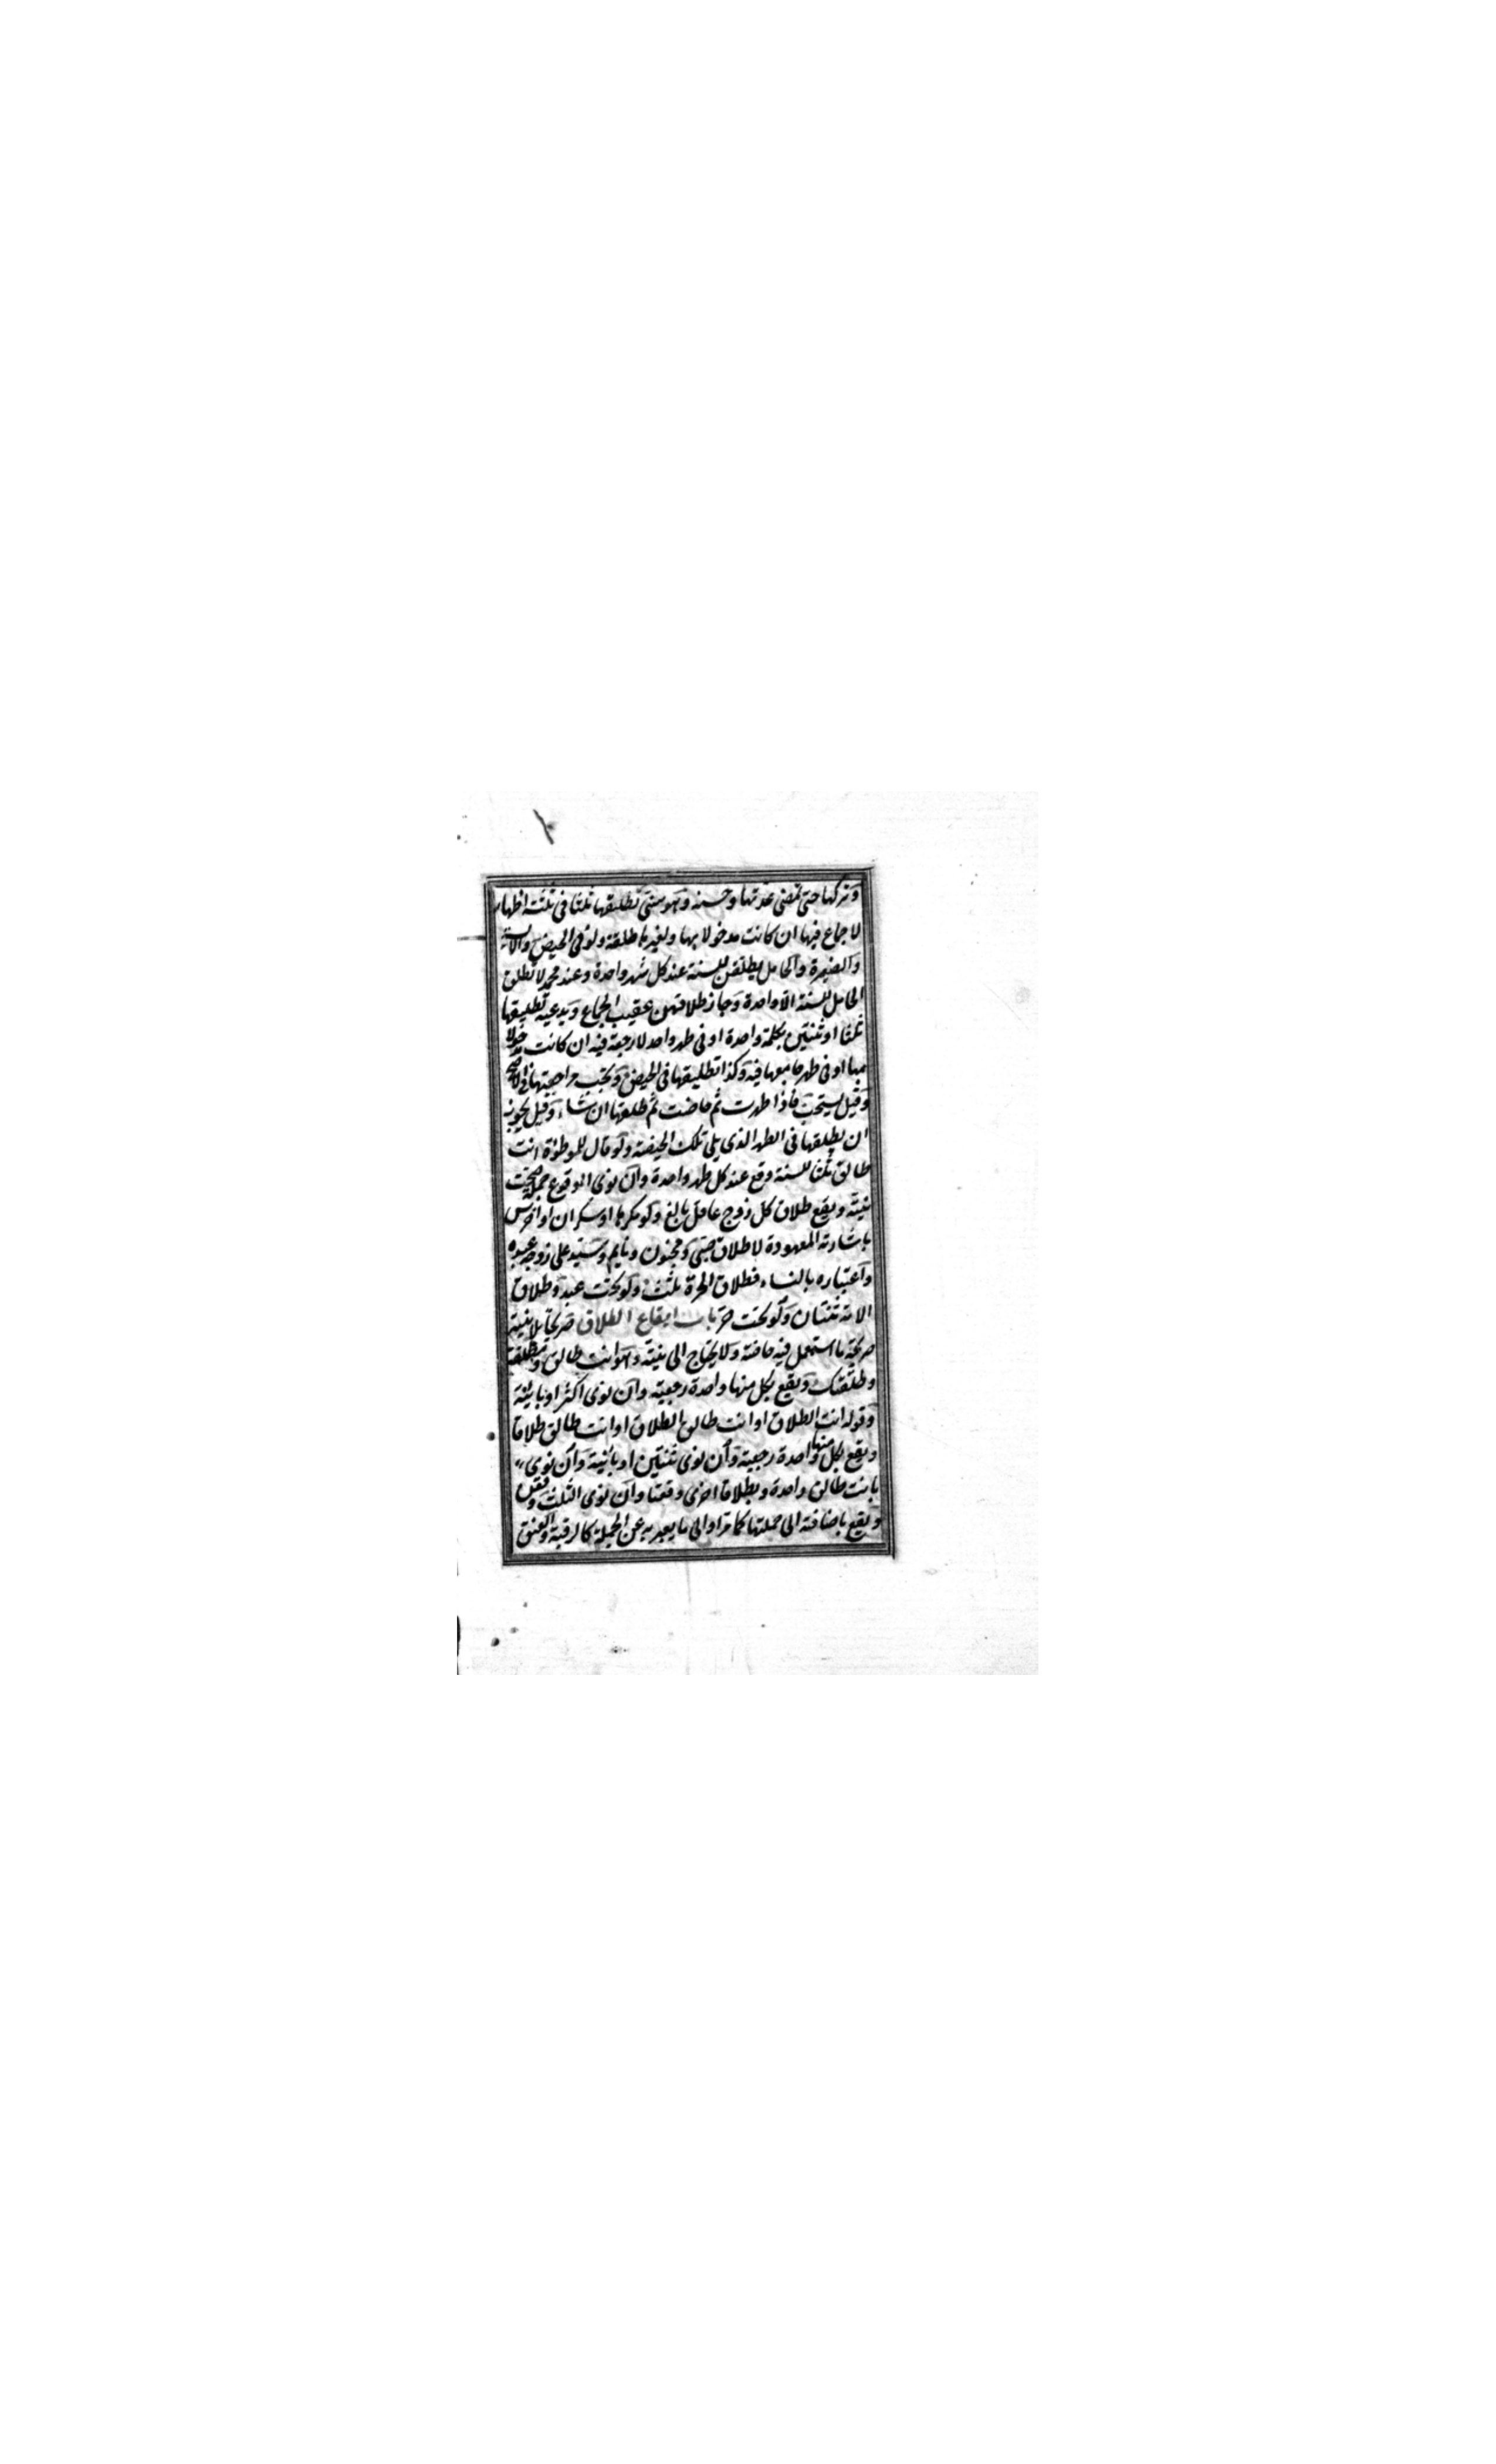 وتركها حتى تمضى عدتها وحسنه وهو سنى تطليقها ثلثا فى ثلثة اطهار
لا جماع فيها ان كانت مدخولا بها ولغيرها طلقة ولو فى الحيض والآيسة
والصغيرة والحامل يطلقن للسنة عند كل شهر واحدة وعند محمد لا تطلق
الحامل للسنة الا واحدة وجاز طلاقهن عقيب الجماع وبدعيه تطليقها
ثلثا او ثنتين بكلمة واحدة او فى طهر واحد لا رجعة فيه ان كانت مدخولا
بها او فى طهر جامعها فيه وكذا تطليقها فى الحيض وتجب مراجعتها فى الاصح
وقيل يستحب فاذا طهرت ثم حاضت ثم طهرت طلقها ان شاء وقيل يجوز
ان يطلقها فى الطهر الذى يلى تلك الحيضة ولو قال للموطؤة انت
طالق ثلثا للسنة وقع عند كل طهر واحدة وان نوى الوقوع جملة صحت
نيته ويقع طلاق كل زوج عاقل بالغ ولو مكرها او سكران او اخرس
باشارته المعهودة لا طلاق صبى ومجنون ونايم وسيد على زوجة عبده
واعتباره بالنساء فطلاق الحرة ثلث ولو تحت عبد وطلاق
الامة ثنتان ولو تحت حر باب ايقاع الطلاق
صريحه ما استعمل فيه خاصة ولا يحتاج الى نية وهو انت طالق ومطلقة
وطلقتك ويقع بكل منها واحدة رجعية وان نوى اكثر او بائنة
وقوله انت الطلاق او انت طالق الطلاق او انت طالق طلاقا
ويقع بكل منها واحدة رجعية وان نوى ثنتين او بائنة وان نوى
بانت طالق واحدة وبطلاقا اخرى وقعتا وان نوى الثلث وقعن
ويقع باضافته الى جملتها كما مر او الى ما يعبر به عن الجملة كالرقبة والعنق